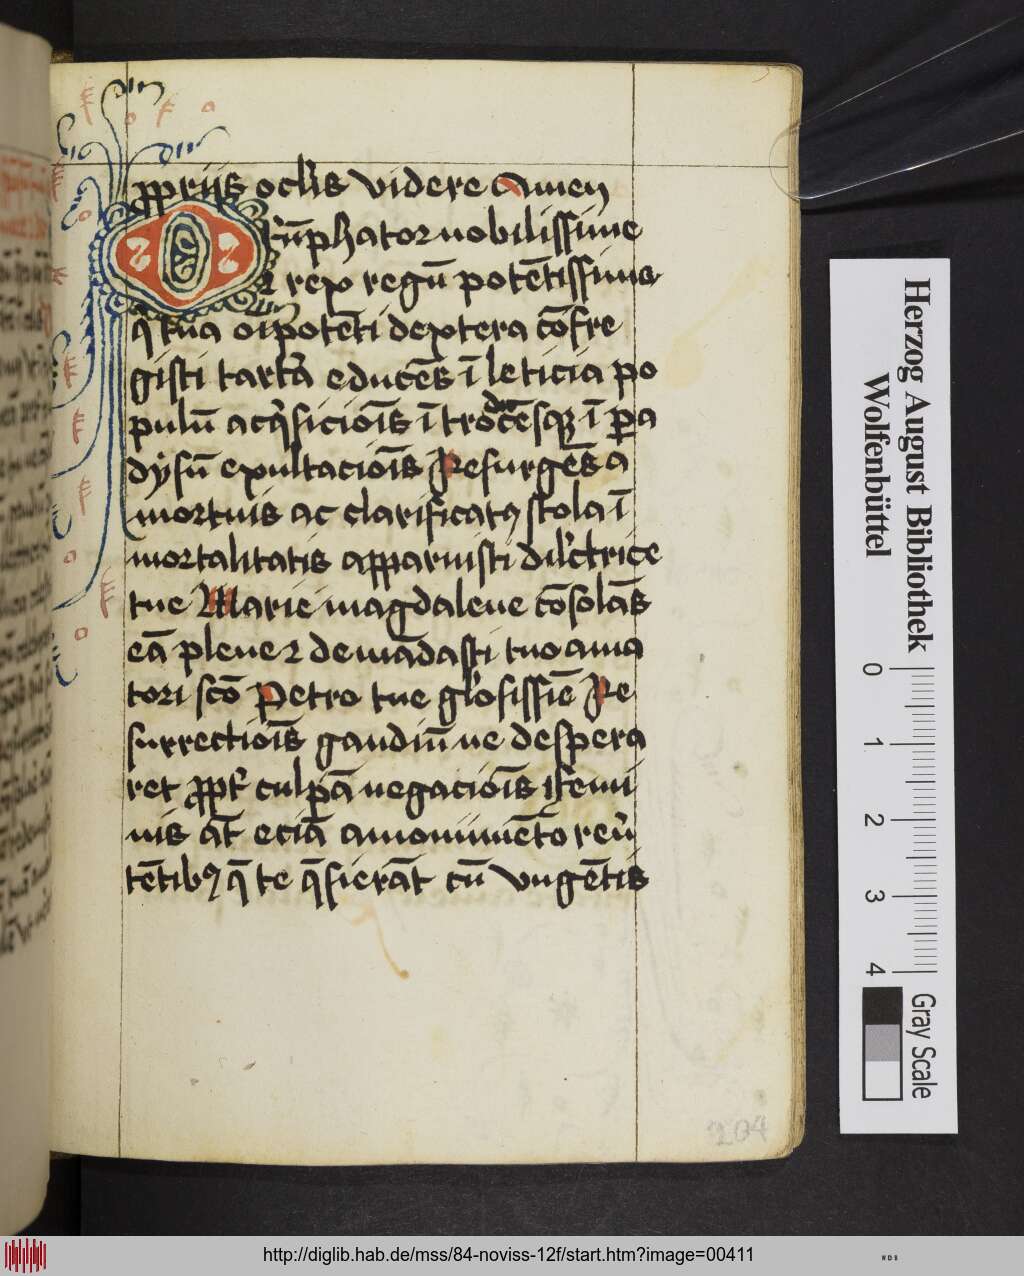 pprijs oclis videre Amen
O tūphator nobilissime
⁊ rex regū potētissimus
q̱ tua oīpotēti dextera cōfre
gisti tartᵃa educēs ī leticia po
pulū acqͥsicioīs ītrodᵘcēsqꝫ ī ꝑa
dysū exultacioīs Resurgēs a
mortuis ac clarificatꝯ stola ī
mortalitatis apparuisti dilͨctrice
tue Marie magdalene cōsolās
eā plene ⁊ demādasti tuo ama
tori scō Petro tue glōsissīe Re
surrectioīs gaudiū ne despera
ret ꝓpt̓ culpā negacioīs ⁊ femi
nis at̄ eciā a monimēto reu̓
tētibꝯ q̄ te q̄sierāt cū vngētis
204
Herzog August Bibliothek
Wolfenbüttel
0 1 2 3 4
Gray Scale
http://diglib.hab.de/mss/84-noviss-12f/start.htm?image=00411